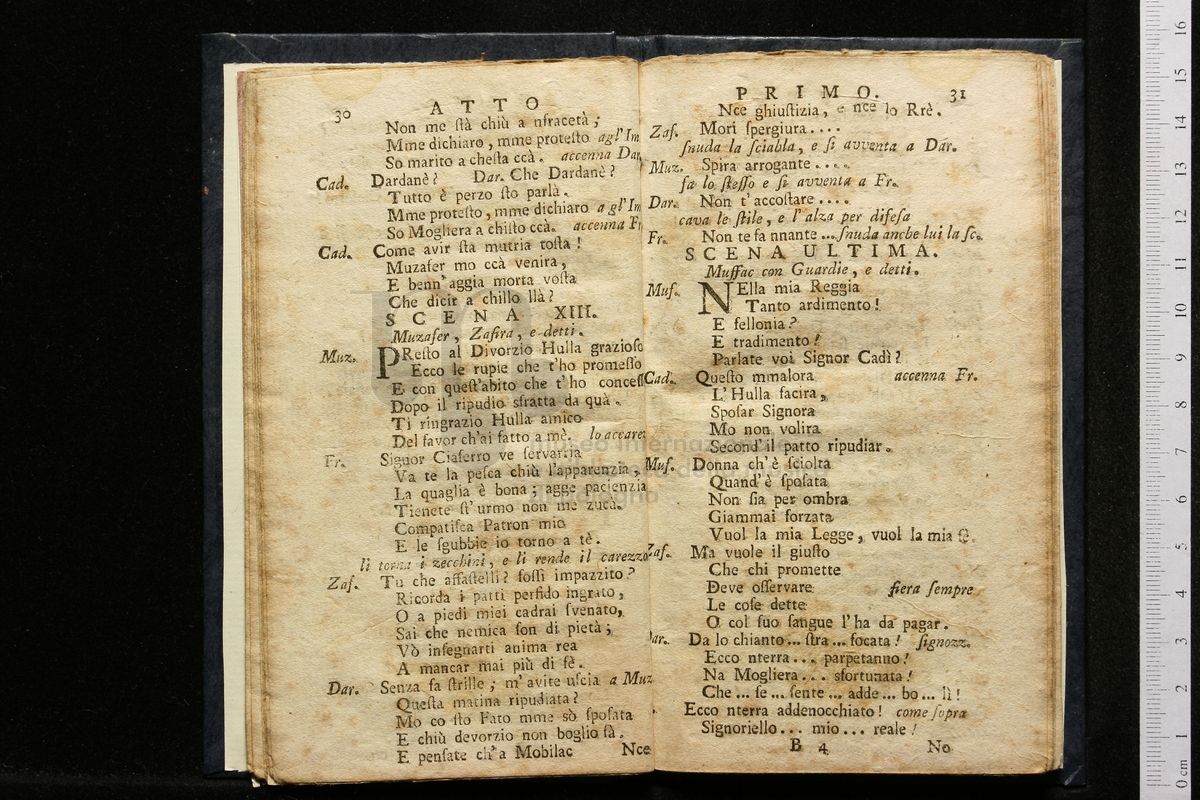 30 ATTO
Non me stà chiù a nfracetà;
Mme dichiaro, mme protesto agl'Im
So marito a chesta ccà. accenna Dar.
Cad. Dardanè? Dar. Che Dardanè?
Tutto è perzo sto parlà.
Mme protesto, mme dichiaro agl'Im
So Mogliera a chisto ccà. accenna Fr
Cad. Come avir sta mutria tosta!
Muzafer mo ccà venira,
E benn'aggia morta vosta
Che dicir a chillo llà?
SCENA XIII.
Muzafer, Zafira, e detti.
Muz. PResto al Divorzio Hulla grazioso
Ecco le rupie che t'ho promesso
E con quest'abito che t'ho concess
Dopo il ripudio sfratta da quà.
Ti ringrazio Hulla amico
Del favor ch'ai fatto a mè. lo accarez
Fr. Signor Ciaferro ve servarria
Va te la pesca chiù l'apparenzia,
La quaglia è bona; agge pacienzia
Tienete st'urmo non me zucà.
Compatisca Patron mio
E le sgubbie io torno a tè.
li torna i zecchini, e li rende il carezzo
Zaf. Tu che affastelli? fossi impazzito?
Ricorda i patti perfido ingrato,
O a piedi miei cadrai svenato,
Sai che nemica son di pietà;
Vò insegnarti anima rea
A mancar mai più di fè.
Dar. Senza fa strille; m'avite uscia a Muz
Questa matina ripudiata?
Mo co sto Fato mme sò sposata
E chiù devorzio non boglio fà.
E pensate ch'a Mobilac Nce
PRIMO. 31
Nce ghiustizia, e nce lo Rrè.
Zaf. Mori spergiura....
snuda la sciabla, e si avventa a Dar.
Muz. Spira arrogante....
fa lo stesso e si avventa a Fr.
Dar. Non t'accostare....
cava le stile, e l'alza per difesa
Fr. Non te fa nnante... snuda anche lui la sc.
SCENA ULTIMA.
Muffac con Guardie, e detti.
Muf. NElla mia Reggia
Tanto ardimento!
E fellonia?
E tradimento!
Parlate voi Signor Cadì?
Cad. Questo mmalora accenna Fr.
L'Hulla facira,
Sposar Signora
Mo non volira
Second'il patto ripudiar.
Muf. Donna ch'è sciolta
Quand'è sposata
Non sia per ombra
Giammai forzata
Vuol la mia Legge, vuol la mia
Zaf. Ma vuole il giusto
Che chi promette
Deve osservare fiera sempre
Le cose dette
O col suo sangue l'ha da pagar.
Dar. Da lo chianto... stra... focata! signozz.
Ecco nterra... parpetanno!
Na Mogliera... sfortunata!
Che... se... sente... adde... bo... lì!
Ecco nterra addenocchiato! come sopra
Signoriello... mio... reale!
B 4 No